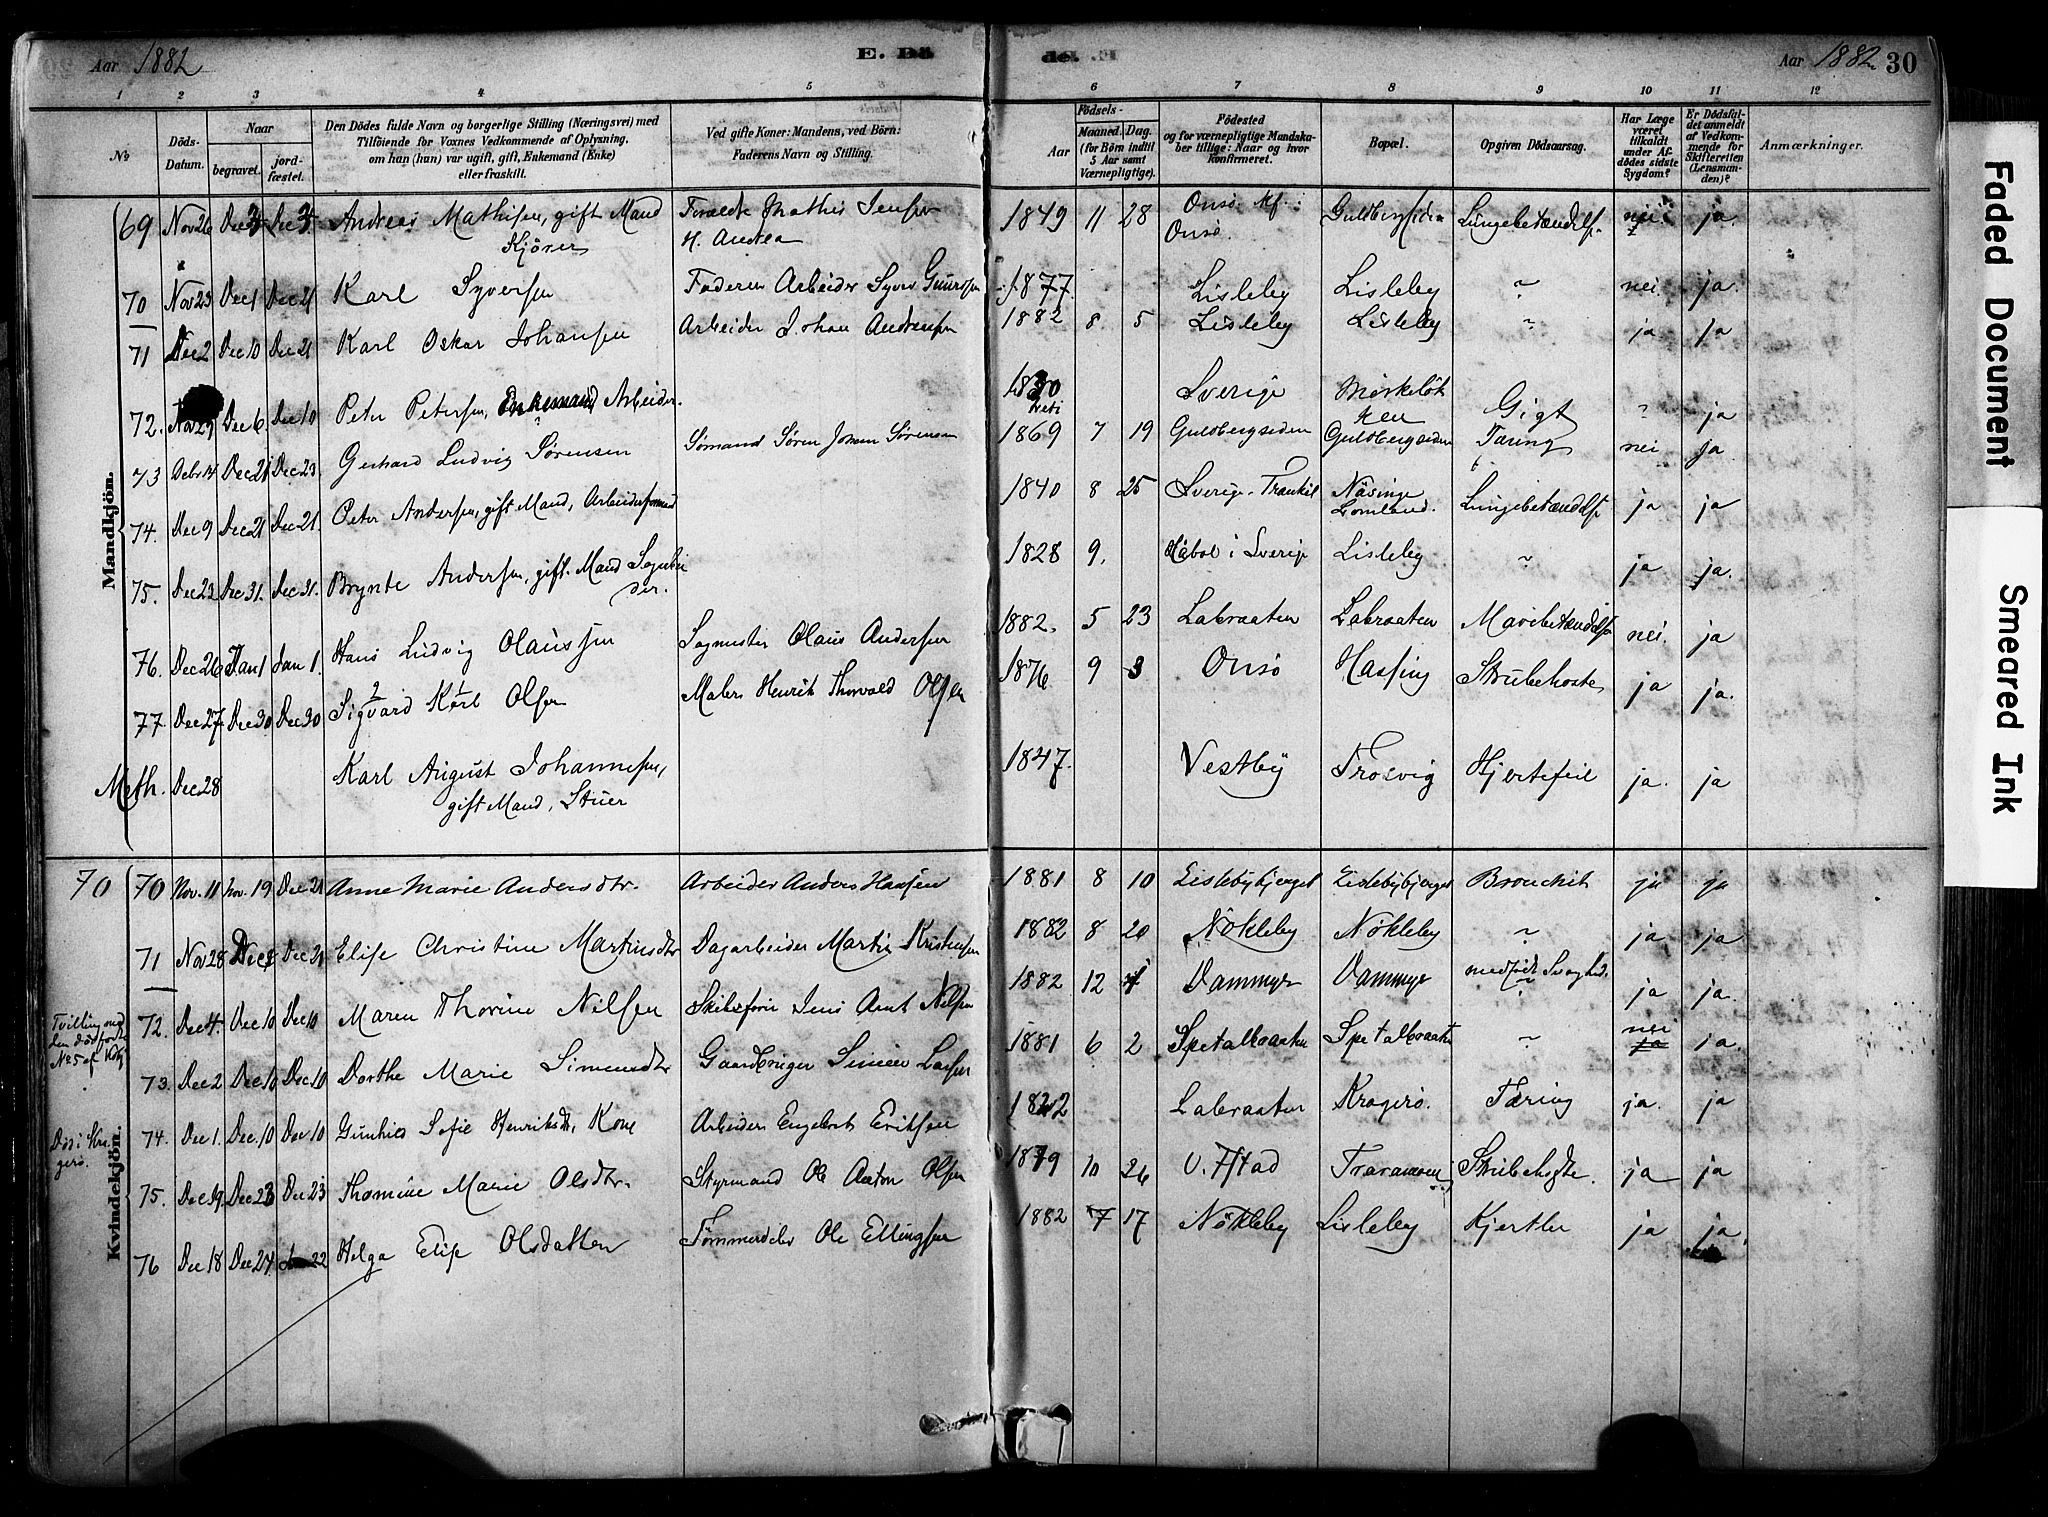 Aar 1882 E. Dö de. Aar 1882 30
1 2 3 4 5 6 7 8 9 10 11 12
No
Döds-Datum.
Naar
begravet.
jord-fæstet.
Den Dödes fulde Navn og borgerlige Stilling (Næringsvei) med
Tilföiende for Voxnes Vedkommende af Oplysning,
om han (hun) var ugift, gift, Enkemand (Enke)
eller fraskilt.
Ved gifte Koner: Mandens, ved Börn:
Faderens Navn og Stilling.
Aar
Födsels-
Maaned. Dag.
(for Börn indtil
5 Aar samt
Værnepligtige).
Födested
og for værnepligtige Mandska-
ber tillige: Naar og hvor
konfirmeret.
Bopæl.
Opgiven Dödsaarsag.
Har Læge
været
tilkaldt
under Af-
dödes sidste
Sygdom?
Er Dödsfal-
det anmeldt
af Vedkom-
mende for
Skifteretten
(Lensman-
den)?
Anmærkninger.
Mandkjön.
69 Nov 26 Dec 3 Dec 3 Andreas Mathisen, gift Mand Mathis Jensen 1849 11 28 Onsö Guldbergsiden Lungebetændelse nei ja
Kjörer H. Andrea Onsö.
70 Nov 23 Dec 1 Dec 21 Karl Syversen Faderen Arbeider Syver 1877 Lisleby Lisleby " nei ja
71 Dec 2 Dec 10 Dec 21 Karl Oskar Johansen Arbeider Johan Andersen 1882 8 5 Lisleby Lisleby " ja ja
72. Nov 29 Dec 6. Dec 10 Peter Petersen, Enkemand Arbeider. 1830 Sverige Gigt " ja
73 Decbr 14 Dec 21 Dec 23 Gerhard Ludvig Sörensen Sömand Sören Johan Sörensen 1869 7 19 Guldbergsiden Guldbergsiden Tæring nei ja
74. Dec 9 Dec 21 Dec 21. Peter Andersen, gift Mand, Arbeidsformand 1840 8 25 Sverige Näsinge Lungebetændelse ja ja
Lomland.
75. Dec 23 Dec 31. Dec 31. Brynte Andersen, gift Mand 1828 9. Håbol i Sverige Lisleby " ja ja.
76. Dec 26 Jan 1 Jan 1. Hans Ludvig Olaussen Sagmester Olaus Andersen 1882. 5 23 Labraaten Labraaten Mavebetændelse nei. ja
77. Dec 27 Dec 30 Dec 30 Sigvard Karl Olsen Maler Henrik Thorvald Olsen 1876 9 3 Onsö Hassing Strubehoste ja ja.
Meth. Dec. 28 Karl August Johannesen, 1847. Vestby Trosvig Hjertefeil ja. ja
gift Mand, Stuer
Kvindekjön.
70 70 Nov. 11 Nov. 19 Dec 21 Anne Marie Andersdtr. Arbeider Anders Hansen 1881 8 10 Lislebybjerget Lislebybjerget Bronchit ja ja
71 Nov 28 Dec 3 Dec 21 Elise Christine Martinsdtr Dagarbeider Martin Kristensen 1882 8 20 Nökleby Nökleby " ja ja
72. Dec 4. Dec 10 Dec 10 Maren Thorine Nilsen Skibsförer Jens Arnt Nilsen 1882 12 4 Dammyr Dammyr medfödt Svaghed. ja ja.
Tvilling med
den dödfödte
No 5 af Kvkj.
73. Dec 2 Dec 10 Dec 10 Dorthe Marie Simensdtr Gaardbruger Simen Larsen 1881 6 2 Spetalbraaten Spetalbraaten " nei ja.
ja
Död i Kra-
gerö.
74. Dec 1. Dec. 10 Dec 10 Gunhild Sofie Henriksdtr, Kone Arbeider Engebret Eriksen 1842 Labraaten Kragerö. Tæring ja. ja
75. Dec 19. Dec 23 Dec 23 Thomine Marie Olsdtr. Styrmand Ole Anton Olsen 1879 10 26 Strubehoste. ja ja
76 Dec 18 Dec 24 22 Helga Elise Olsdatter Tömmerdeler Ole Ellingsen 1882 7 17 Nökleby Lisleby Kjertler ja ja.
Faded Document
Smeared Ink